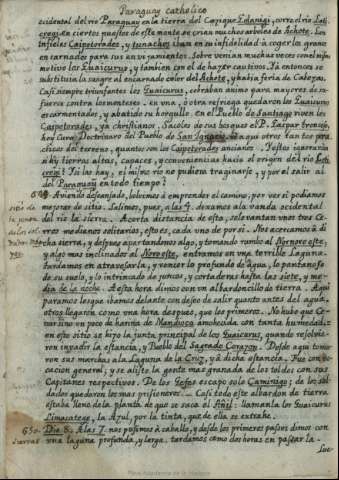 Paraguay catholico
cidental del rio Paraguay en la tierra del Cazique Edanigi, corre el rio Loti-
cregi en ciertos puestos de este monte se crian muchos arboles de Achote. Los
Infieles Caipotorades, y tunachos iban en su infidelidad a coger los granos
encarnados para sus envijamientos. Sobre venian muchas veces con el mismo
motivo los Guaicurus, y tambien con el de hazer cautivos. Ya entonces se
substituta la sangre al encarnado color del Achote, y habia feria de Cabezas.
Casi siempre triunfantes los Guaicurus, cobraban animo para mayores de su
fuerza contra los montes. en una, ò otra refriega quedaron los Guaicurus
escarmentados, y abatido su horgullo. En el Pueblo de Santiago viven los
Caipotorades, ya christianos. Sacolos de sus bosques el P. Gaspar troncoso,
hoy Cura Doctrinero del Pueblo de San Ignacio. Hai aqui otros tan bue prac-
ticos del terreno, quanto son los Caipotorades ancianos. Y estos ignoraran
si hay tierras altas, capaces, y conveniencias hacia el origen del rio Loti-
cregi? Si las hay, el mismo rio no pudiera traginarse, y por el salir al
del Paraguay en todo tiempo?
649. Aviendo descansado, bolvimos à emprender el camino, por ver si podiamos
mejorar de sitio. Salimos, pues, a las 4. dexamos a la vanda occidental
del rio la sierra. A corta distancia de esta, se levantan unos tres Ce-
rros medianos solitarios, esto es, cada uno de por si. Nos acercamos à di-
cha sierra, y despues apartandonos algo, y tomando rumbo al Nornoroeste,
y algo mas inclinados al Noroeste, entramos en una terrible Laguna.
tardamos en atravesarla, y vencer lo profundo de agua, lo pantanoso
de su suelo, y lo intrincado de juncos, y cortaderas hasta las siete, y me-
dia de la noche. A esta hora dimos con un albardoncillo de tierra. Aqui
paramos los que ibamos delante con deseo de salir quanto antes del agua.
otros llegaron como una hora despues, que los primeros. No hubo que Ce-
nar sino un poco de harina de Mandioca amohecida con tanta humedad.
en este sitio se hizo la junta principal de los Guaicurus, quando resolvie-
ron invadir la estancia, y Pueblo del Sagrado Corazon. Desde aqui toma-
ron sus marchas a la Laguna de la Cruz, y à dicha estancia. Fue con vo-
cacion general; y se alistò la gente mas granada de los toldos con sus
Capitanes respectivos. De los Gefes escapo solo Caminigo; de los sol-
dados quedaron los mas prisioneros. Casi todo este albardon de tierra
estaba lleno de la planta, de que se saca el Añil: llamanla los Guaicurus
Limacatege, la Azul, por la tinta, que de ella se extrahe.
650. Dia 8. A las 7. nos pusimos à caballo, y desde los primeros pasos dimos con
una laguna profunda, y larga. tardamos como dos horas en pasarla.
sitio de
la junta
sierras
Real Academia de la Historia